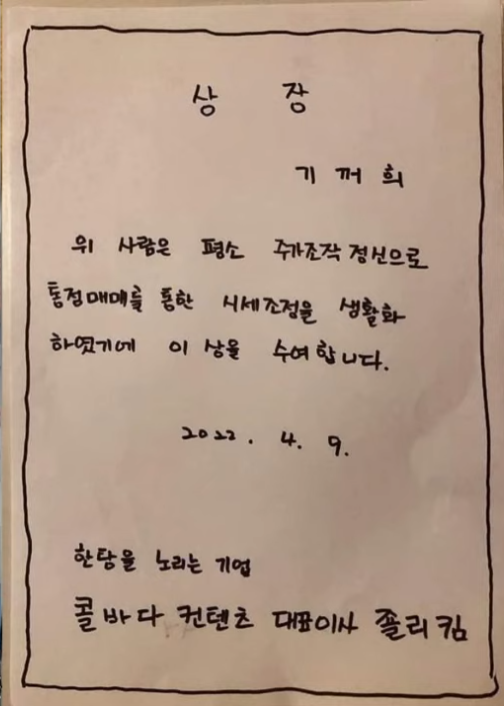 상 장
기 꺼 희
위 사람은 평소 주가조작 정신으로
통정매매를 통한 시세조정을 생활화
하였기에 이 상을 수여합니다.
2022. 4. 9.
한탕을 노리는 기업
콜바다 컨텐츠 대표이사 졸리킴